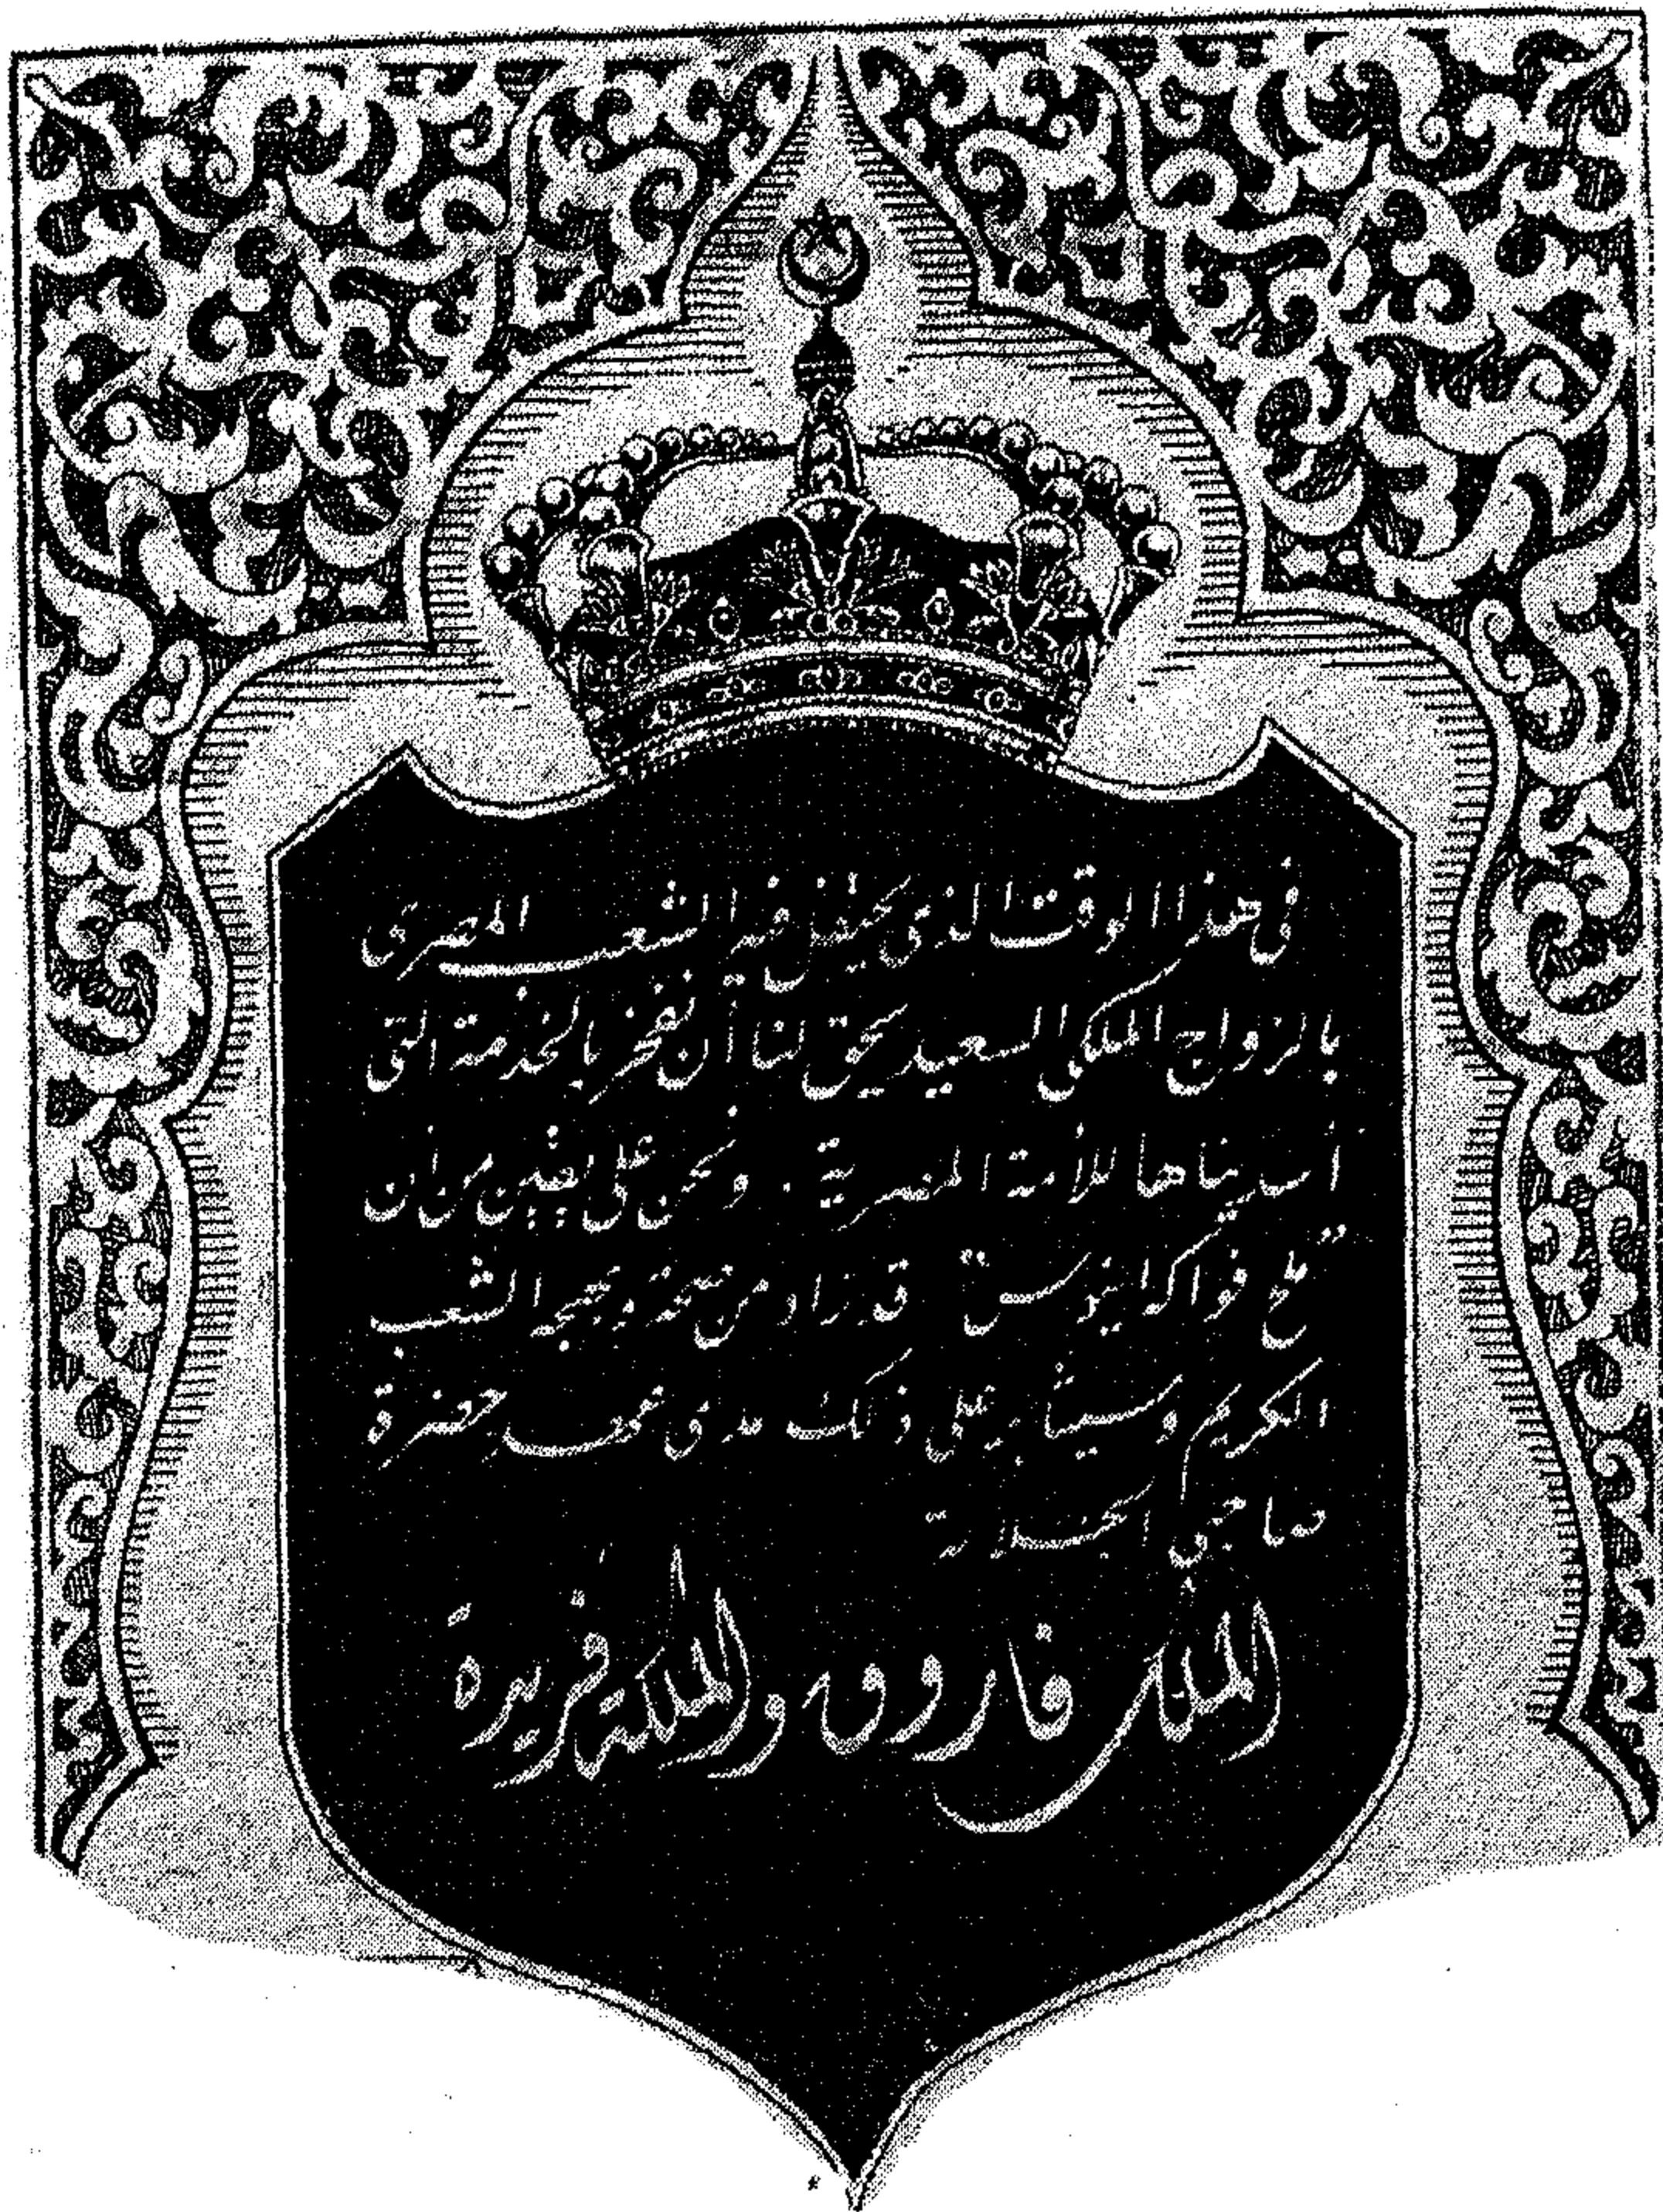 في هذا الوقت الذي يحتفل فيه الشعب المصري
بالزواج الملكي السعيد يحق لنا أن نفخر بالخدمة التي
أسديناها للأمة المصرية . ونحن على يقين من أن
ملح فواكه اينوس قد زاد من صحة وبهجة الشعب
الكريم وسيثابر على ذلك مدى عهد حضرة
صاحبي الجلالة
الملك فاروق والملكة فريدة